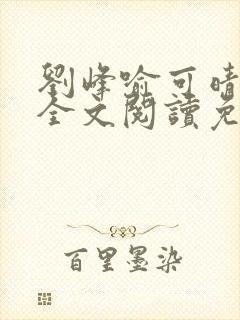 劉峰喻可晴
全文閱讀免
百里墨染